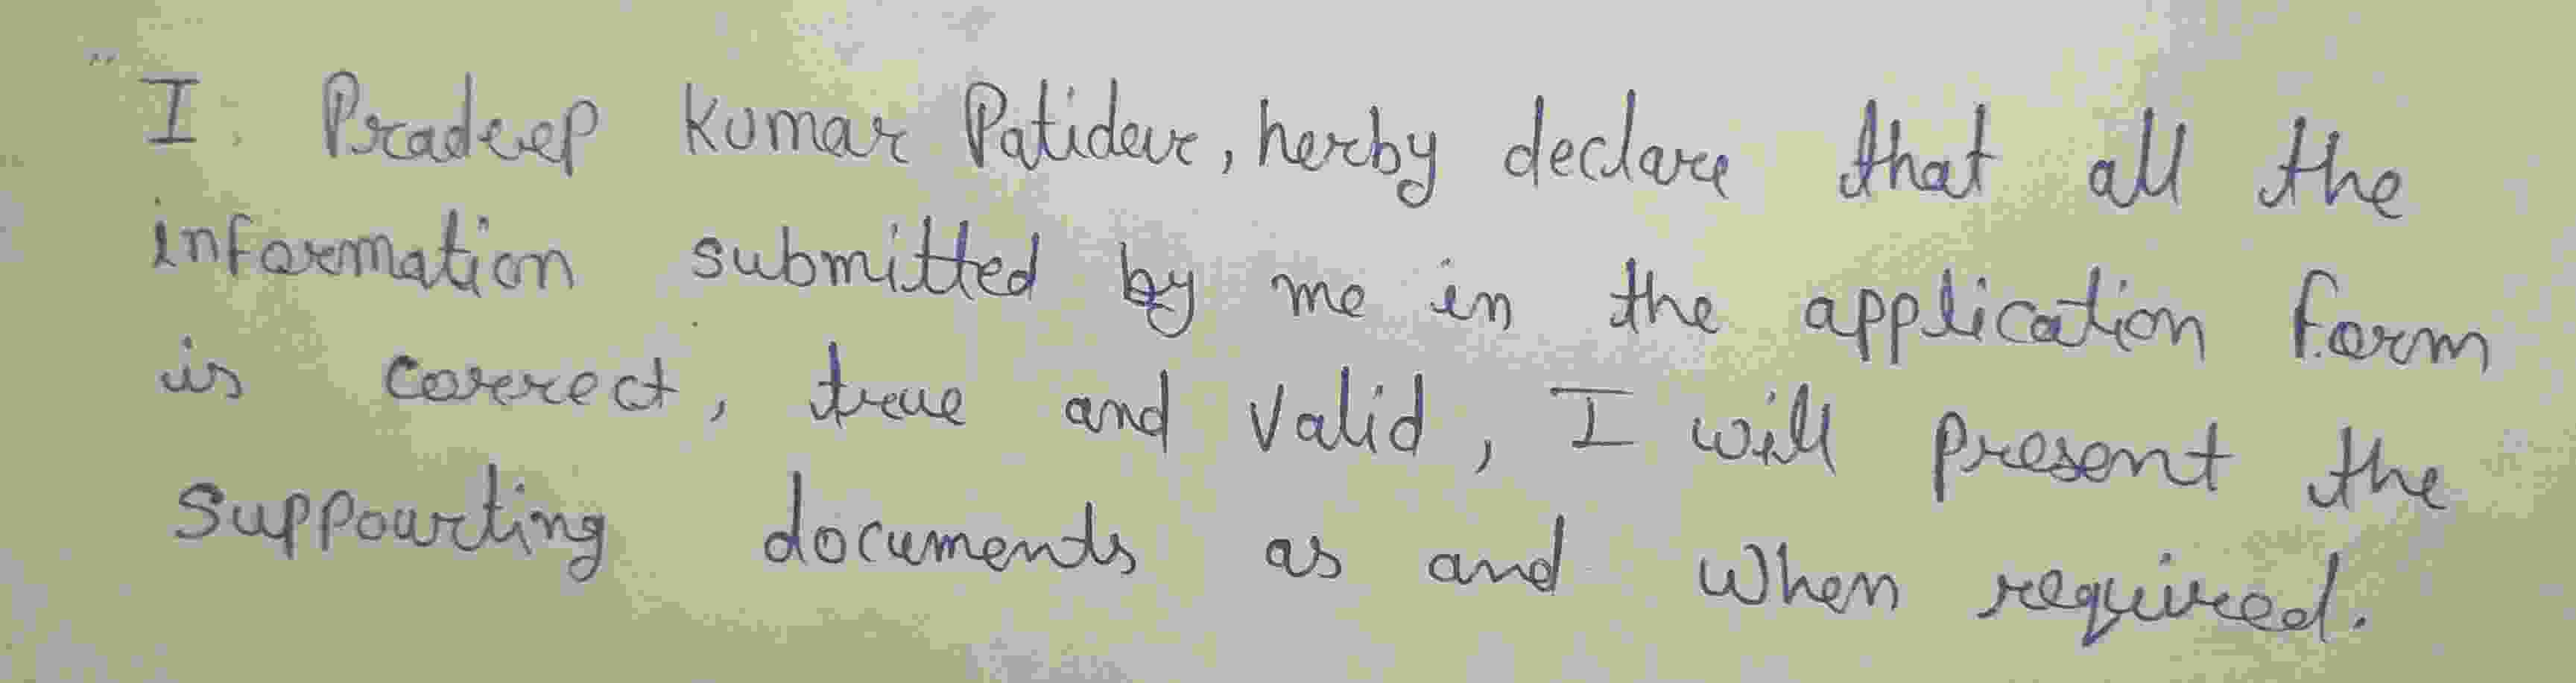 "I, Pradeep Kumar Patidar, herby declare that all the
information submitted by me in the application form
is correct, true and valid, I will present the
supporting documents as and when required.